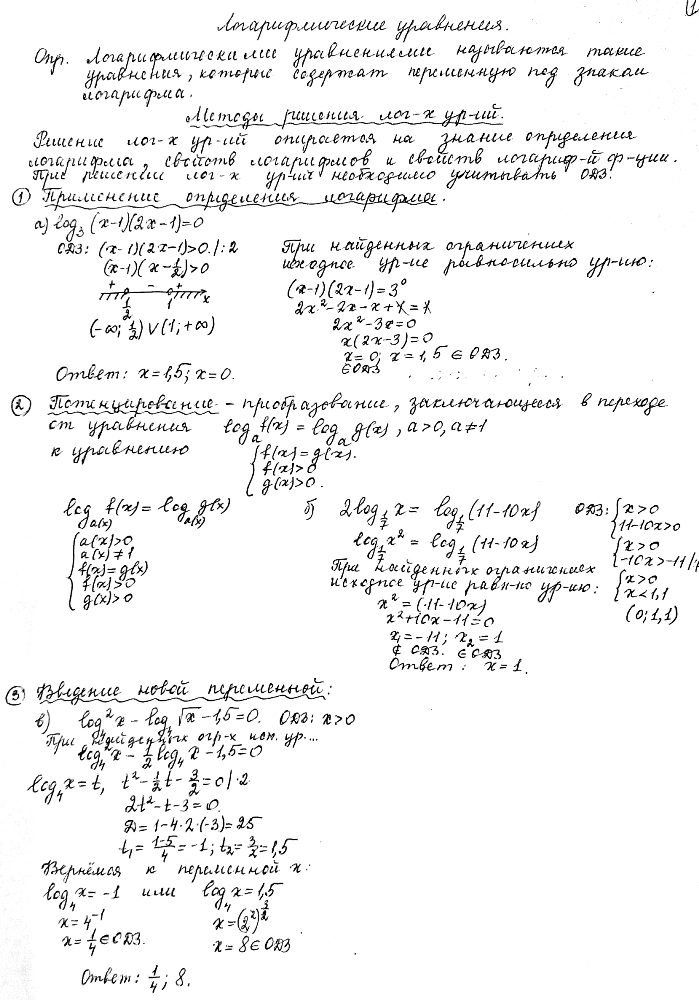 1
Логарифмические уравнения.
Опр. Логарифмическими уравнениями называются такие
уравнения, которые содержат переменную под знаком
логарифма.
Методы решения лог-х ур-ий.
Решение лог-х ур-ий опирается на знание определения
логарифма, свойств логарифмов и свойств логариф-й ф-ции.
При решении лог-х ур-ий необходимо учитывать ОДЗ!
① Применение определения логарифма.
а) log₃ (x-1)(2x-1)=0
ОДЗ: (x-1)(2x-1)>0 /:2
(x-1)(x-1/2)>0
+ - +
1/2 1 x
(-∞; 1/2) ∨ (1; +∞)
При найденных ограничениях
исходное ур-ие равносильно ур-ию:
(x-1)(2x-1)=3⁰
2x²-2x-x+1=1
2x²-3x=0
x(2x-3)=0
x=0; x=1,5 ∈ ОДЗ.
∈ОДЗ
Ответ: x=1,5; x=0.
② Потенцирование - преобразование, заключающееся в переходе
от уравнения logₐ f(x) = logₐ g(x), a>0, a≠1
к уравнению { f(x)=g(x).
f(x)>0
g(x)>0.
log_a(x) f(x) = log_a(x) g(x)
{ a(x)>0
a(x)≠1
f(x)=g(x)
f(x)>0
g(x)>0
б) 2log_1/7 x = log_1/7 (11-10x)
log_1/7 x² = log_1/7 (11-10x)
При найденных ограничениях
исходное ур-ие равн-но ур-ию:
x²=(11-10x)
x²+10x-11=0
x₁=-11; x₂=1
∉ ОДЗ. ∈ОДЗ
Ответ: x=1.
ОДЗ: { x>0
11-10x>0
{ x>0
-10x>-11
{ x>0
x<1,1
(0; 1,1)
③ Введение новой переменной:
в) log₄²x - log₄√x - 1,5=0. ОДЗ: x>0
При найденных огр-х исх. ур...
log₄²x - 1/2 log₄x - 1,5=0
log₄x=t, t²-1/2t-3/2=0 |·2
2t²-t-3=0.
Д=1-4·2·(-3)=25
t₁=(1-5)/4=-1; t₂=3/2=1,5
Вернёмся к переменной x:
log₄x=-1 или log₄x=1,5
x=4⁻¹ x=(2²)^3/2
x=1/4∈ОДЗ. x=8∈ОДЗ
Ответ: 1/4; 8.